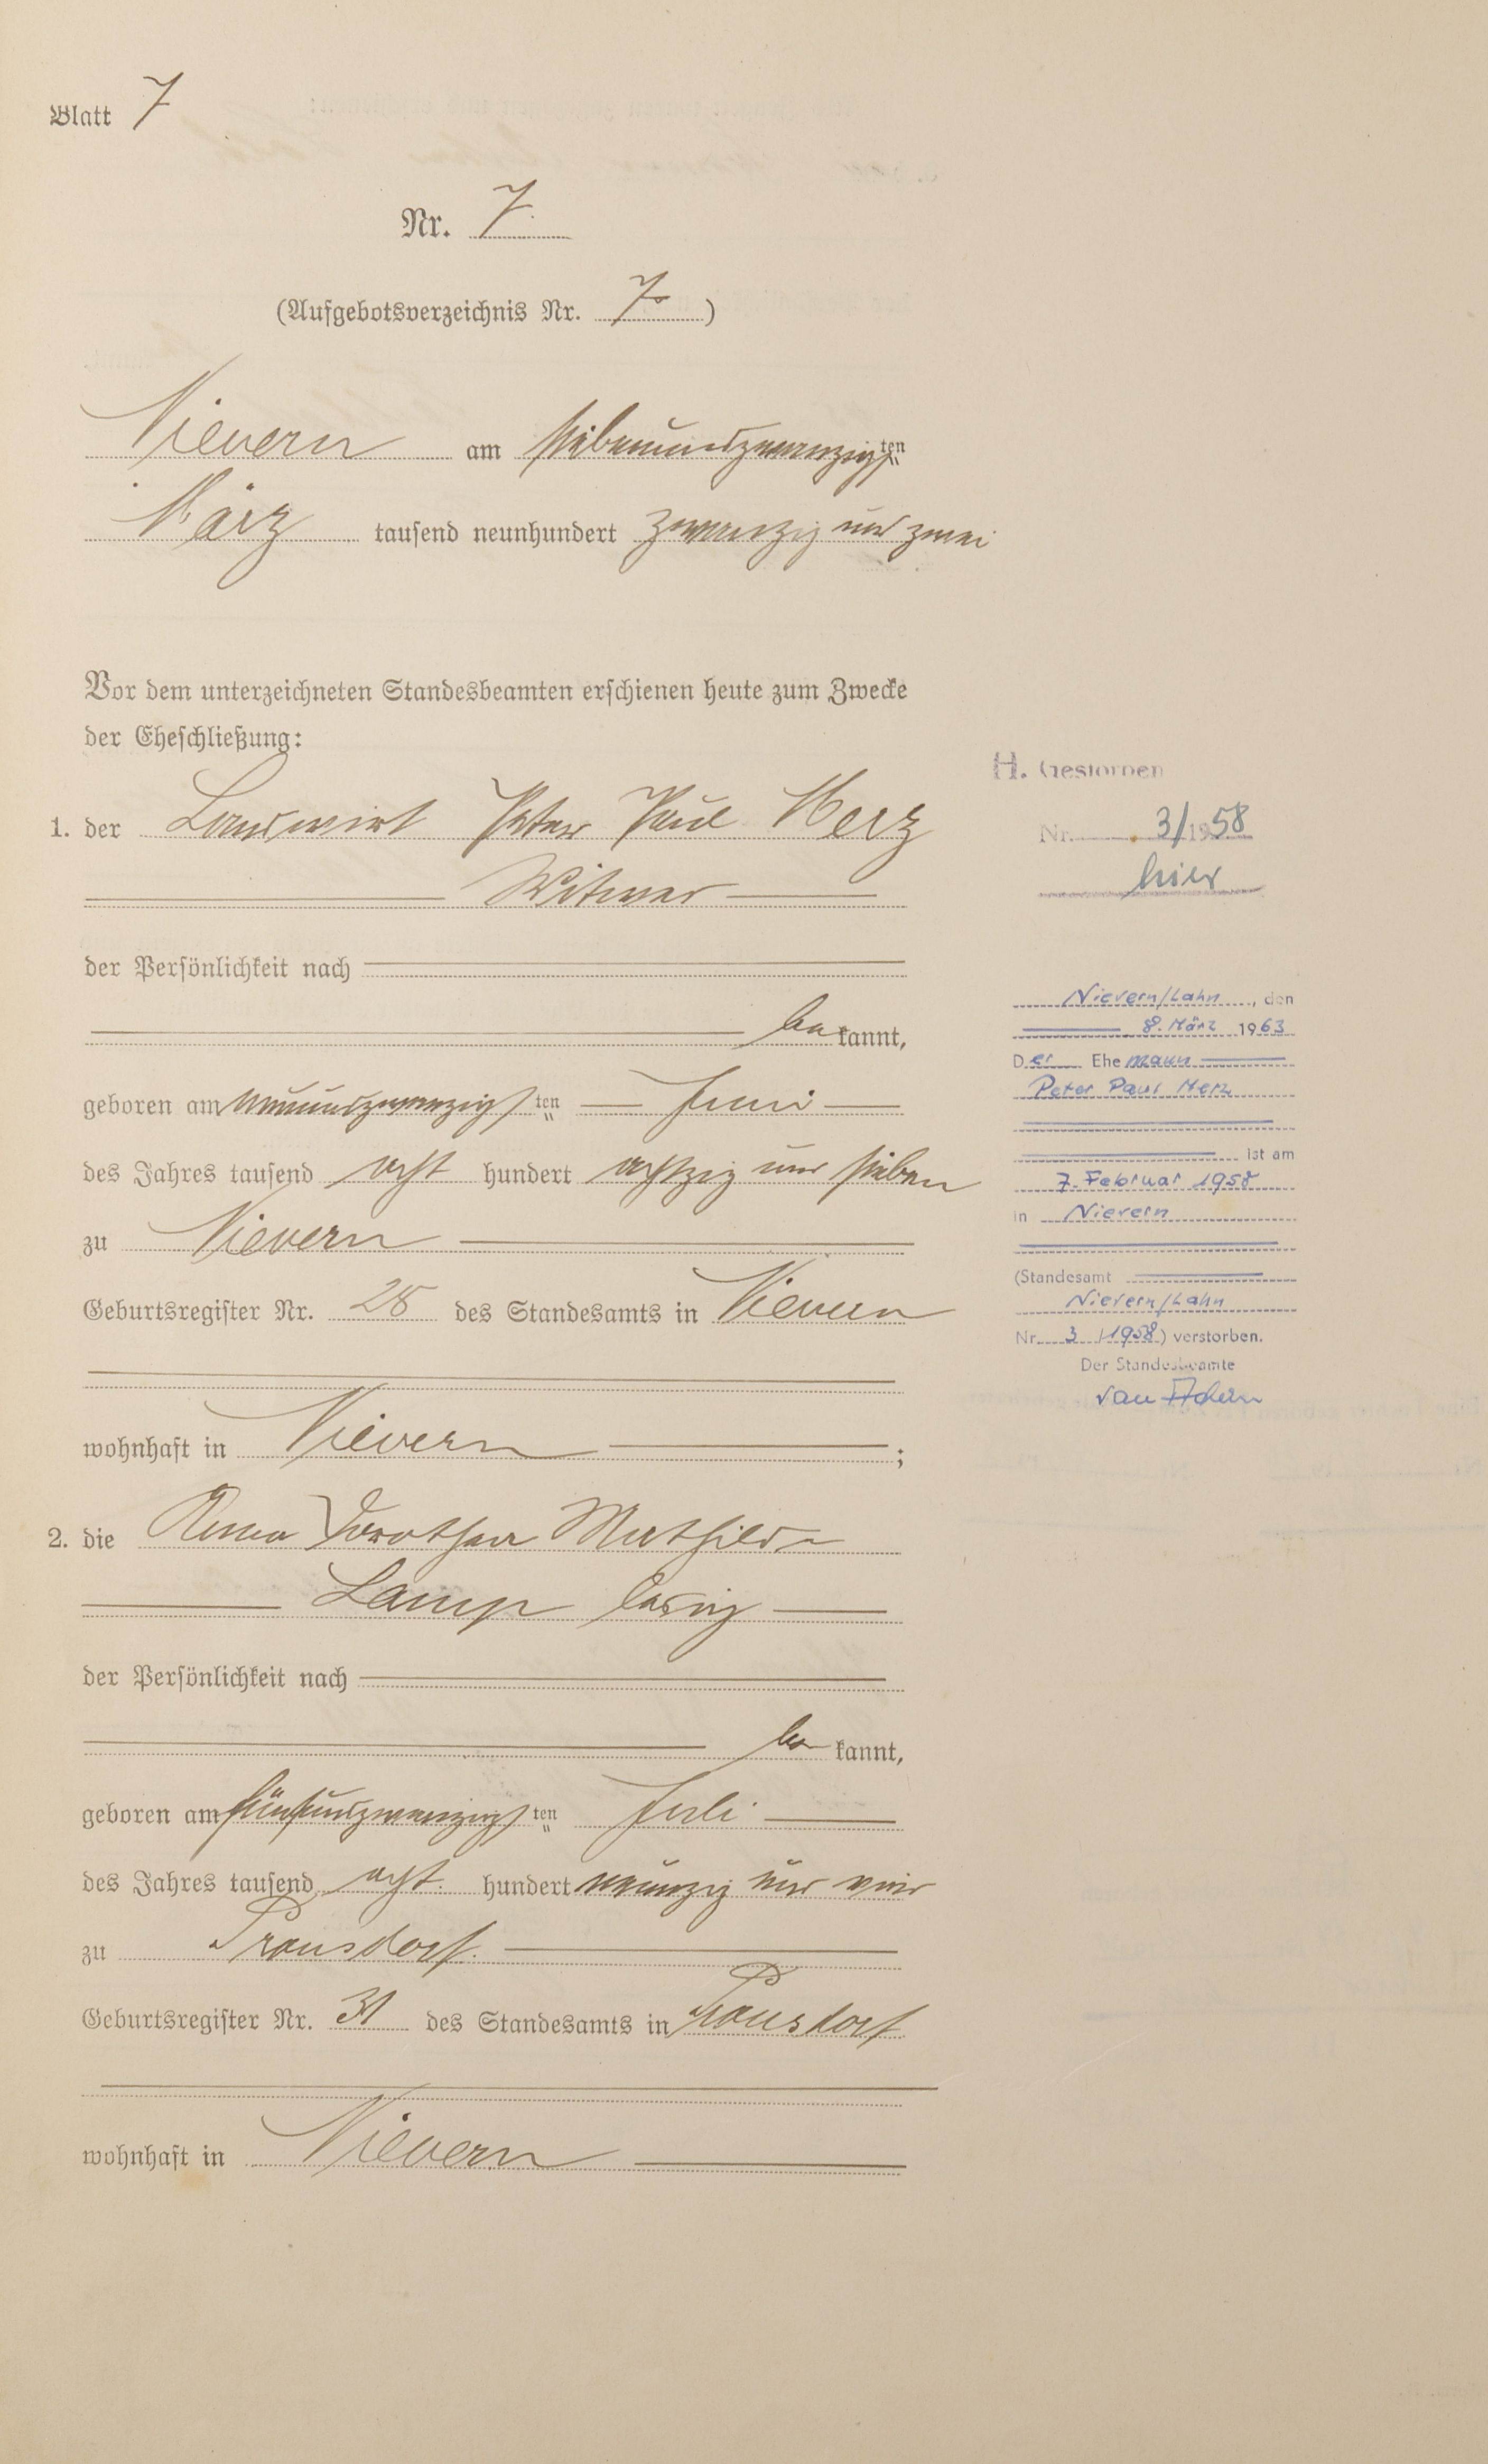 Blatt 7
Nr. 7.
(Aufgebotsverzeichnis Nr. 7)
Nievern am siebenundzwanzigsten
März tausend neunhundert zwanzig und zwei
Vor dem unterzeichneten Standesbeamten erschienen heute zum Zwecke
der Eheschließung:
1. der Landwirt Peter Paul Merz
Witwer
der Persönlichkeit nach
bekannt,
geboren am neunundzwanzigsten Juni
des Jahres tausend acht hundert achtzig und sieben
zu Nievern
Geburtsregister Nr. 25 des Standesamts in Nievern
wohnhaft in Nievern ;
2. die Anna Dorothea Mathilde
Lamp ledig
der Persönlichkeit nach
bekannt,
geboren am fünfundzwanzigsten Juli
des Jahres tausend acht hundert neunzig und vier
zu Pronsdorf.
Geburtsregister Nr. 31 des Standesamts in Pronsdorf
wohnhaft in Nievern
H. Gestorben
Nr. 3/1958
hier
Nievern/Lahn, den
8. März 1963
Der Ehemann
Peter Paul Merz
ist am
7. Februar 1958
in Nievern
(Standesamt
Nievern/Lahn
Nr. 3/1958) verstorben.
Der Standesbeamte
van